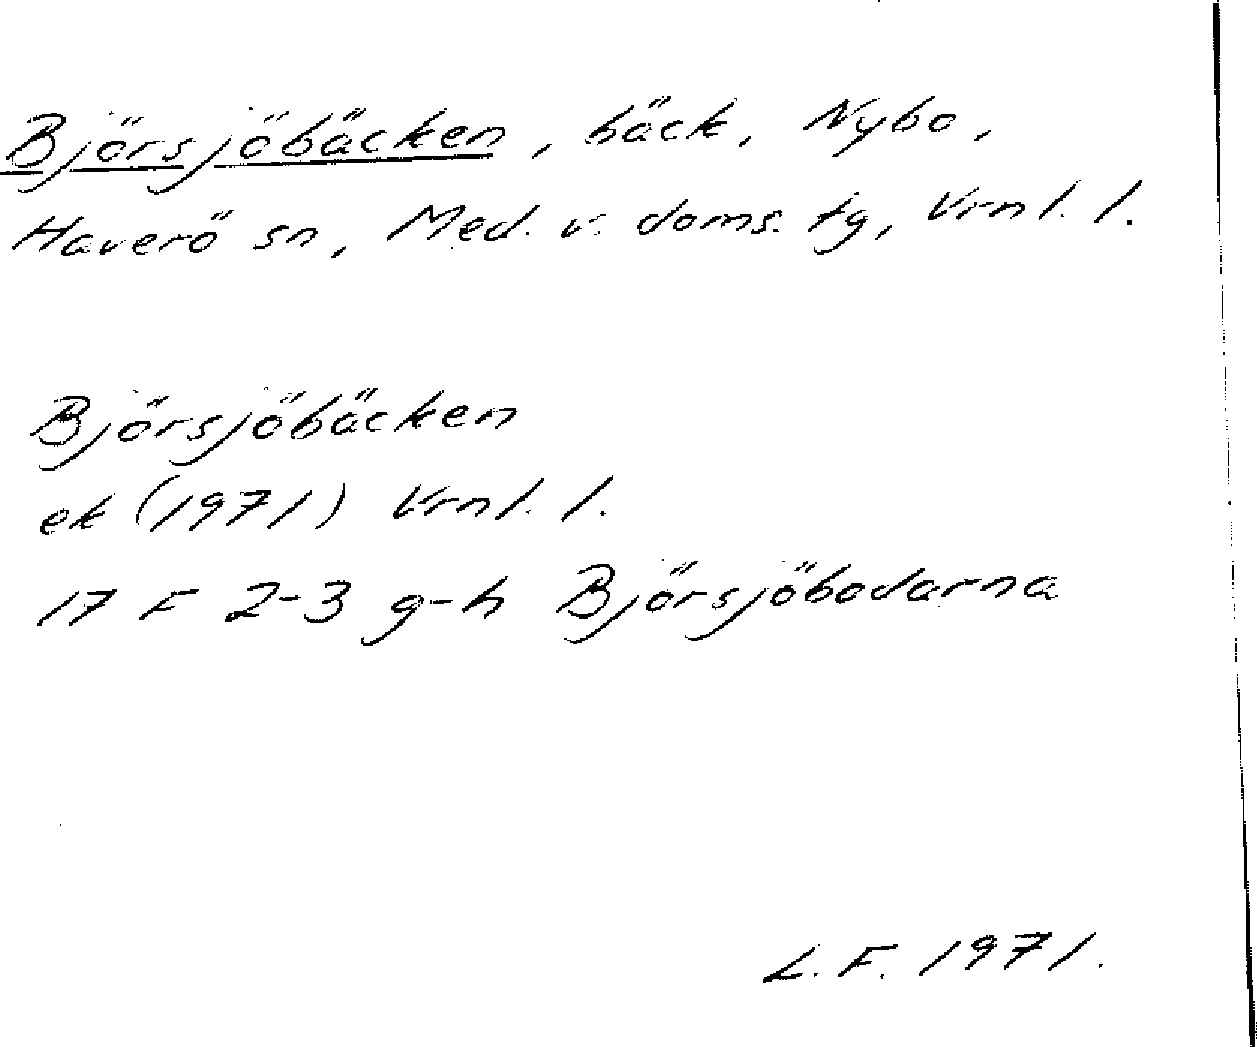 Björsjöbäcken, bäck, Nybo,
Haverö sn, Med. v. doms. tg, Vrnl. l.
Björsjöbäcken
ek (1971) Vrnl. l.
17 F 2-3 g-h Björsjöbodarna
L. F. 1971.